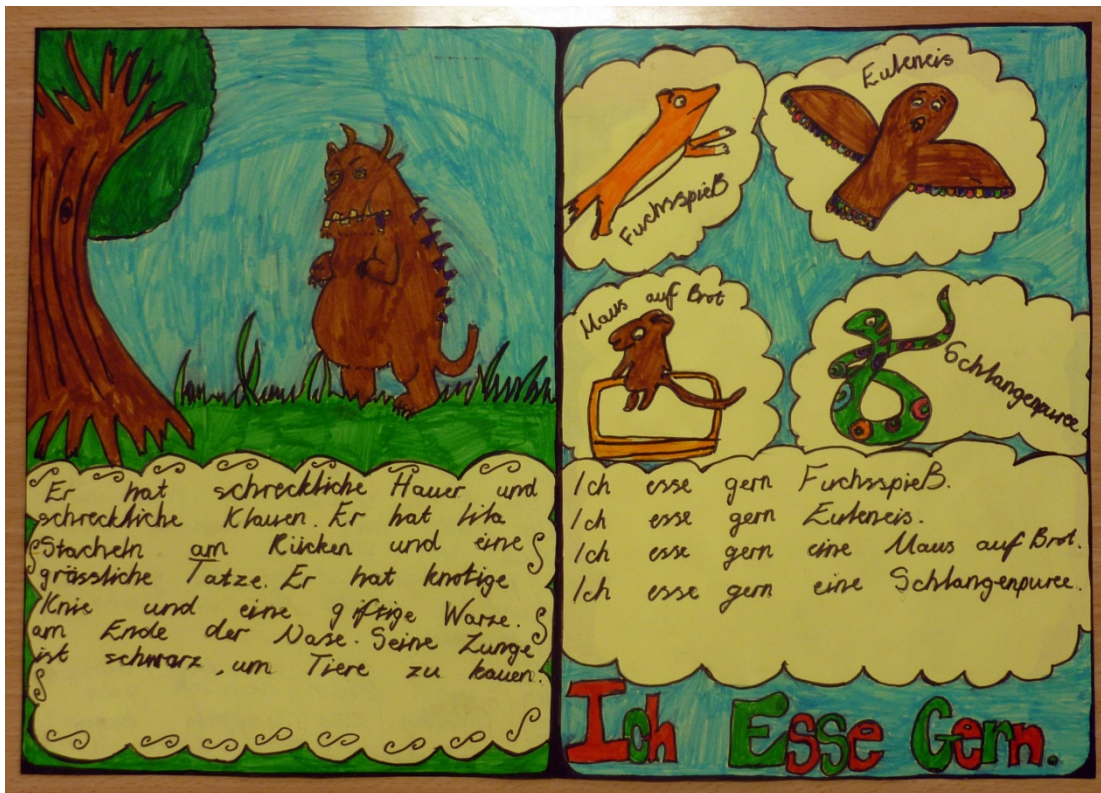 Er hat schreckliche Hauer und
schreckliche Klauen. Er hat lila
Stacheln am Rücken und eine
grässliche Tatze. Er hat knotige
Knie und eine giftige Warze.
am Ende der Nase. Seine Zunge
ist schwarz, um Tiere zu kauen.
Euleneis
Fuchsspieß
Maus auf Brot
Schlangenpuree
Ich esse gern Fuchsspieß.
Ich esse gern Euleneis.
Ich esse gern eine Maus auf Brot.
Ich esse gern eine Schlangenpuree.
Ich Esse Gern.